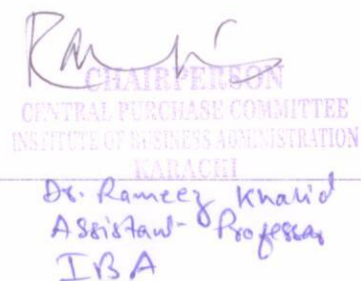 CHAIRPERSON
CENTRAL PURCHASE COMMITTEE
INSTITUTE OF BUSINESS ADMINISTRATION
KARACHI
Dr. Rameez Khalid
Assistant Professor
IBA